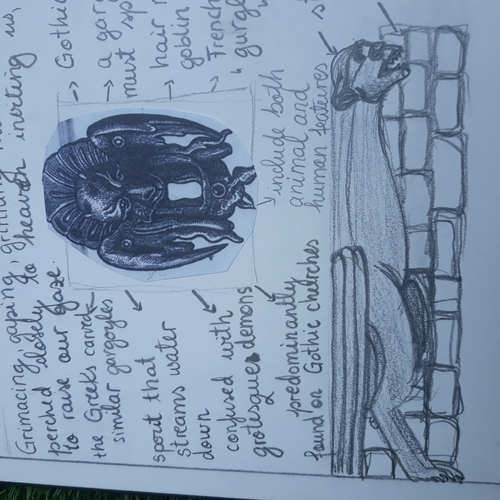 Grimacing, gaping, grinning
perched closely to heaven inviting us,
to raise our gaze.
the Greeks carved
similar gargoyles
spout that
streams water
down
confused with
grotesques & demons
predominantly
found on Gothic churches
→ Gothic
→ a garg
must sp
→ hair
goblin
French
gurgl
include both
animal and
human features